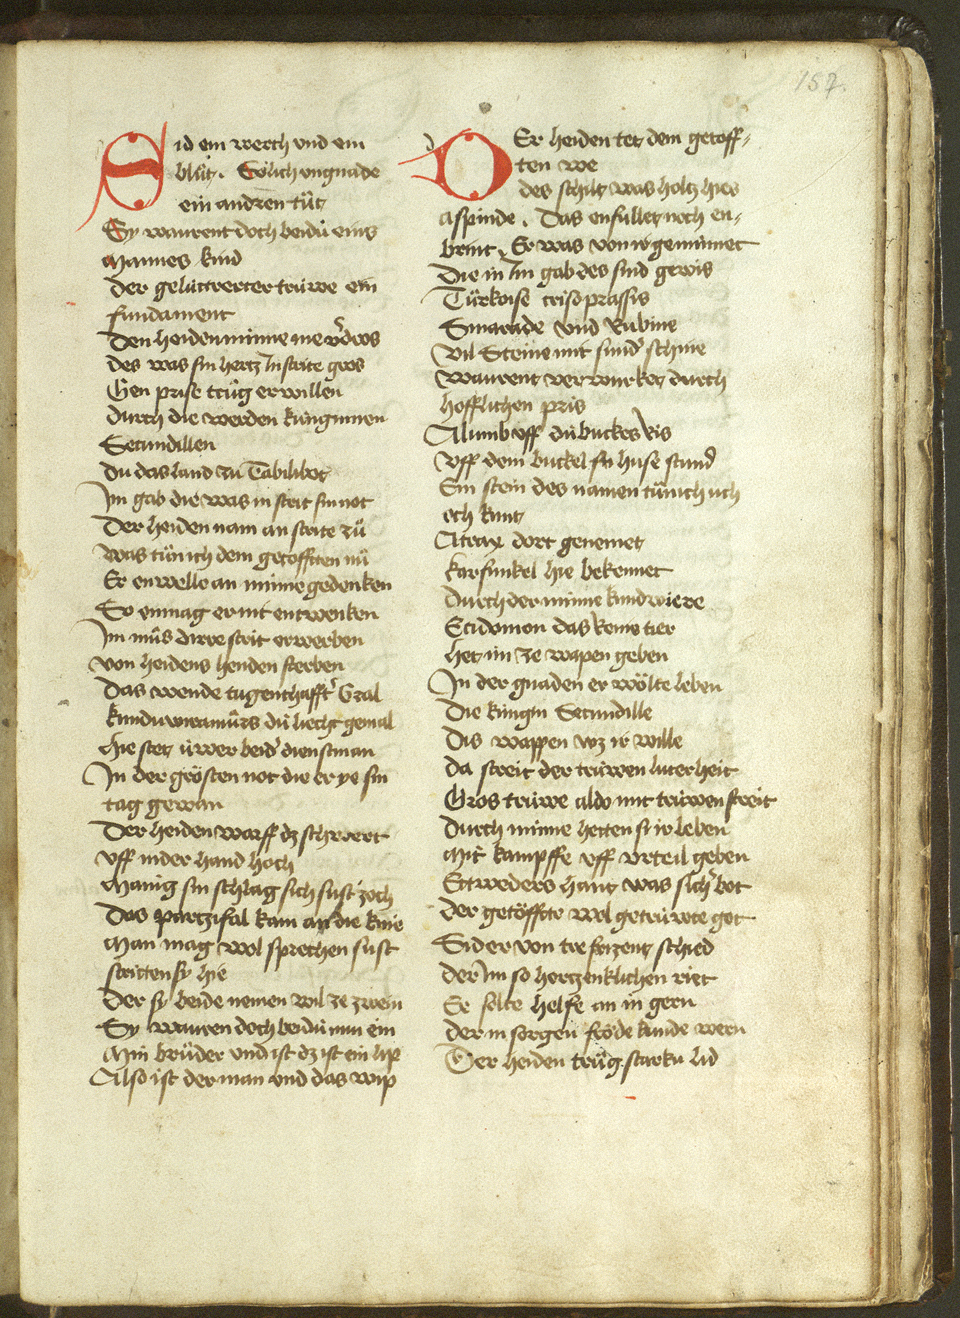 157.
Sid ein verch vnd ein
blůt. Sölich vngnade
ein andren tůt
Sy warent doch beidú eins
Mannes kind
Der gelútterter trúwe ein
fundament
Den heiden minne nie v'dros
des was sin hertz Jn strite gros
Gen prise trůg er willen
durch die werden kúnginnen
Secundillen
Dú das land zů Tabilibot
Jm gab die was in strit sin not
Der heiden nam an strite zů
Was tůn ich dem getofften nů
Er en welle an minne gedenken
So enmag er nit entwenken
Jm můs dirre strit erwerben
von heidens henden sterben
Das wende tugenthafft' Gral
kunduwiramůrs dú liecht gemal
hie stet úwer beid' dienstman
Jn der grösten not die er ye sin
tag gewan
Der heiden warff dz schwert
vff in der hand hoch
Manig sin schlag sich sust zoch
Das partzifal kam an die knie
Man mag wol sprechen sust
stritten sy hie
Der sy beide nemen wil ze zwein
Sy waren doch beidú nun ein
Min brůder vnd ist dz ist ein lip
Also ist der man vnd das wip
DEr heiden tet dem getoff-
ten we
des schilt was holtz hies
aspinde. Das enfullet noch en-
brint. Er was von ir geminnet
Die in Jm gab des sind gewis
Túrkoise crisoprassis
Smarade vnd Rubine
Vil Steine mit sund' schine
Warent verwurket durch
hofflichen pris
Alumb vff dú buckes kis
Vff dem buckel huse stund
Ein stein des namen tůn ich uch
och kunt
Atrax dort genemet
karfunkel hie bekennet
Durch der minne kundwiere
Ecidomon das reine tier
het im ze wapen geben
Jn der gnaden er wölte leben
Die kúngin Secundille
Dis wappen wz ir wille
da streit der trúwen luterheit
Gros trúwe aldo mit trúwen streit
durch minne hetten si ir leben
Mit kampffe vff vrteil geben
Etweders hant was sich' bot
der getöffte wol getrúwte got
Sid er von trefrizent schied
der Jm so hertzenklichen riet
Er solte helfe an in gern
der in sorgen fröde kunde wern
Der heiden trůg starku lid